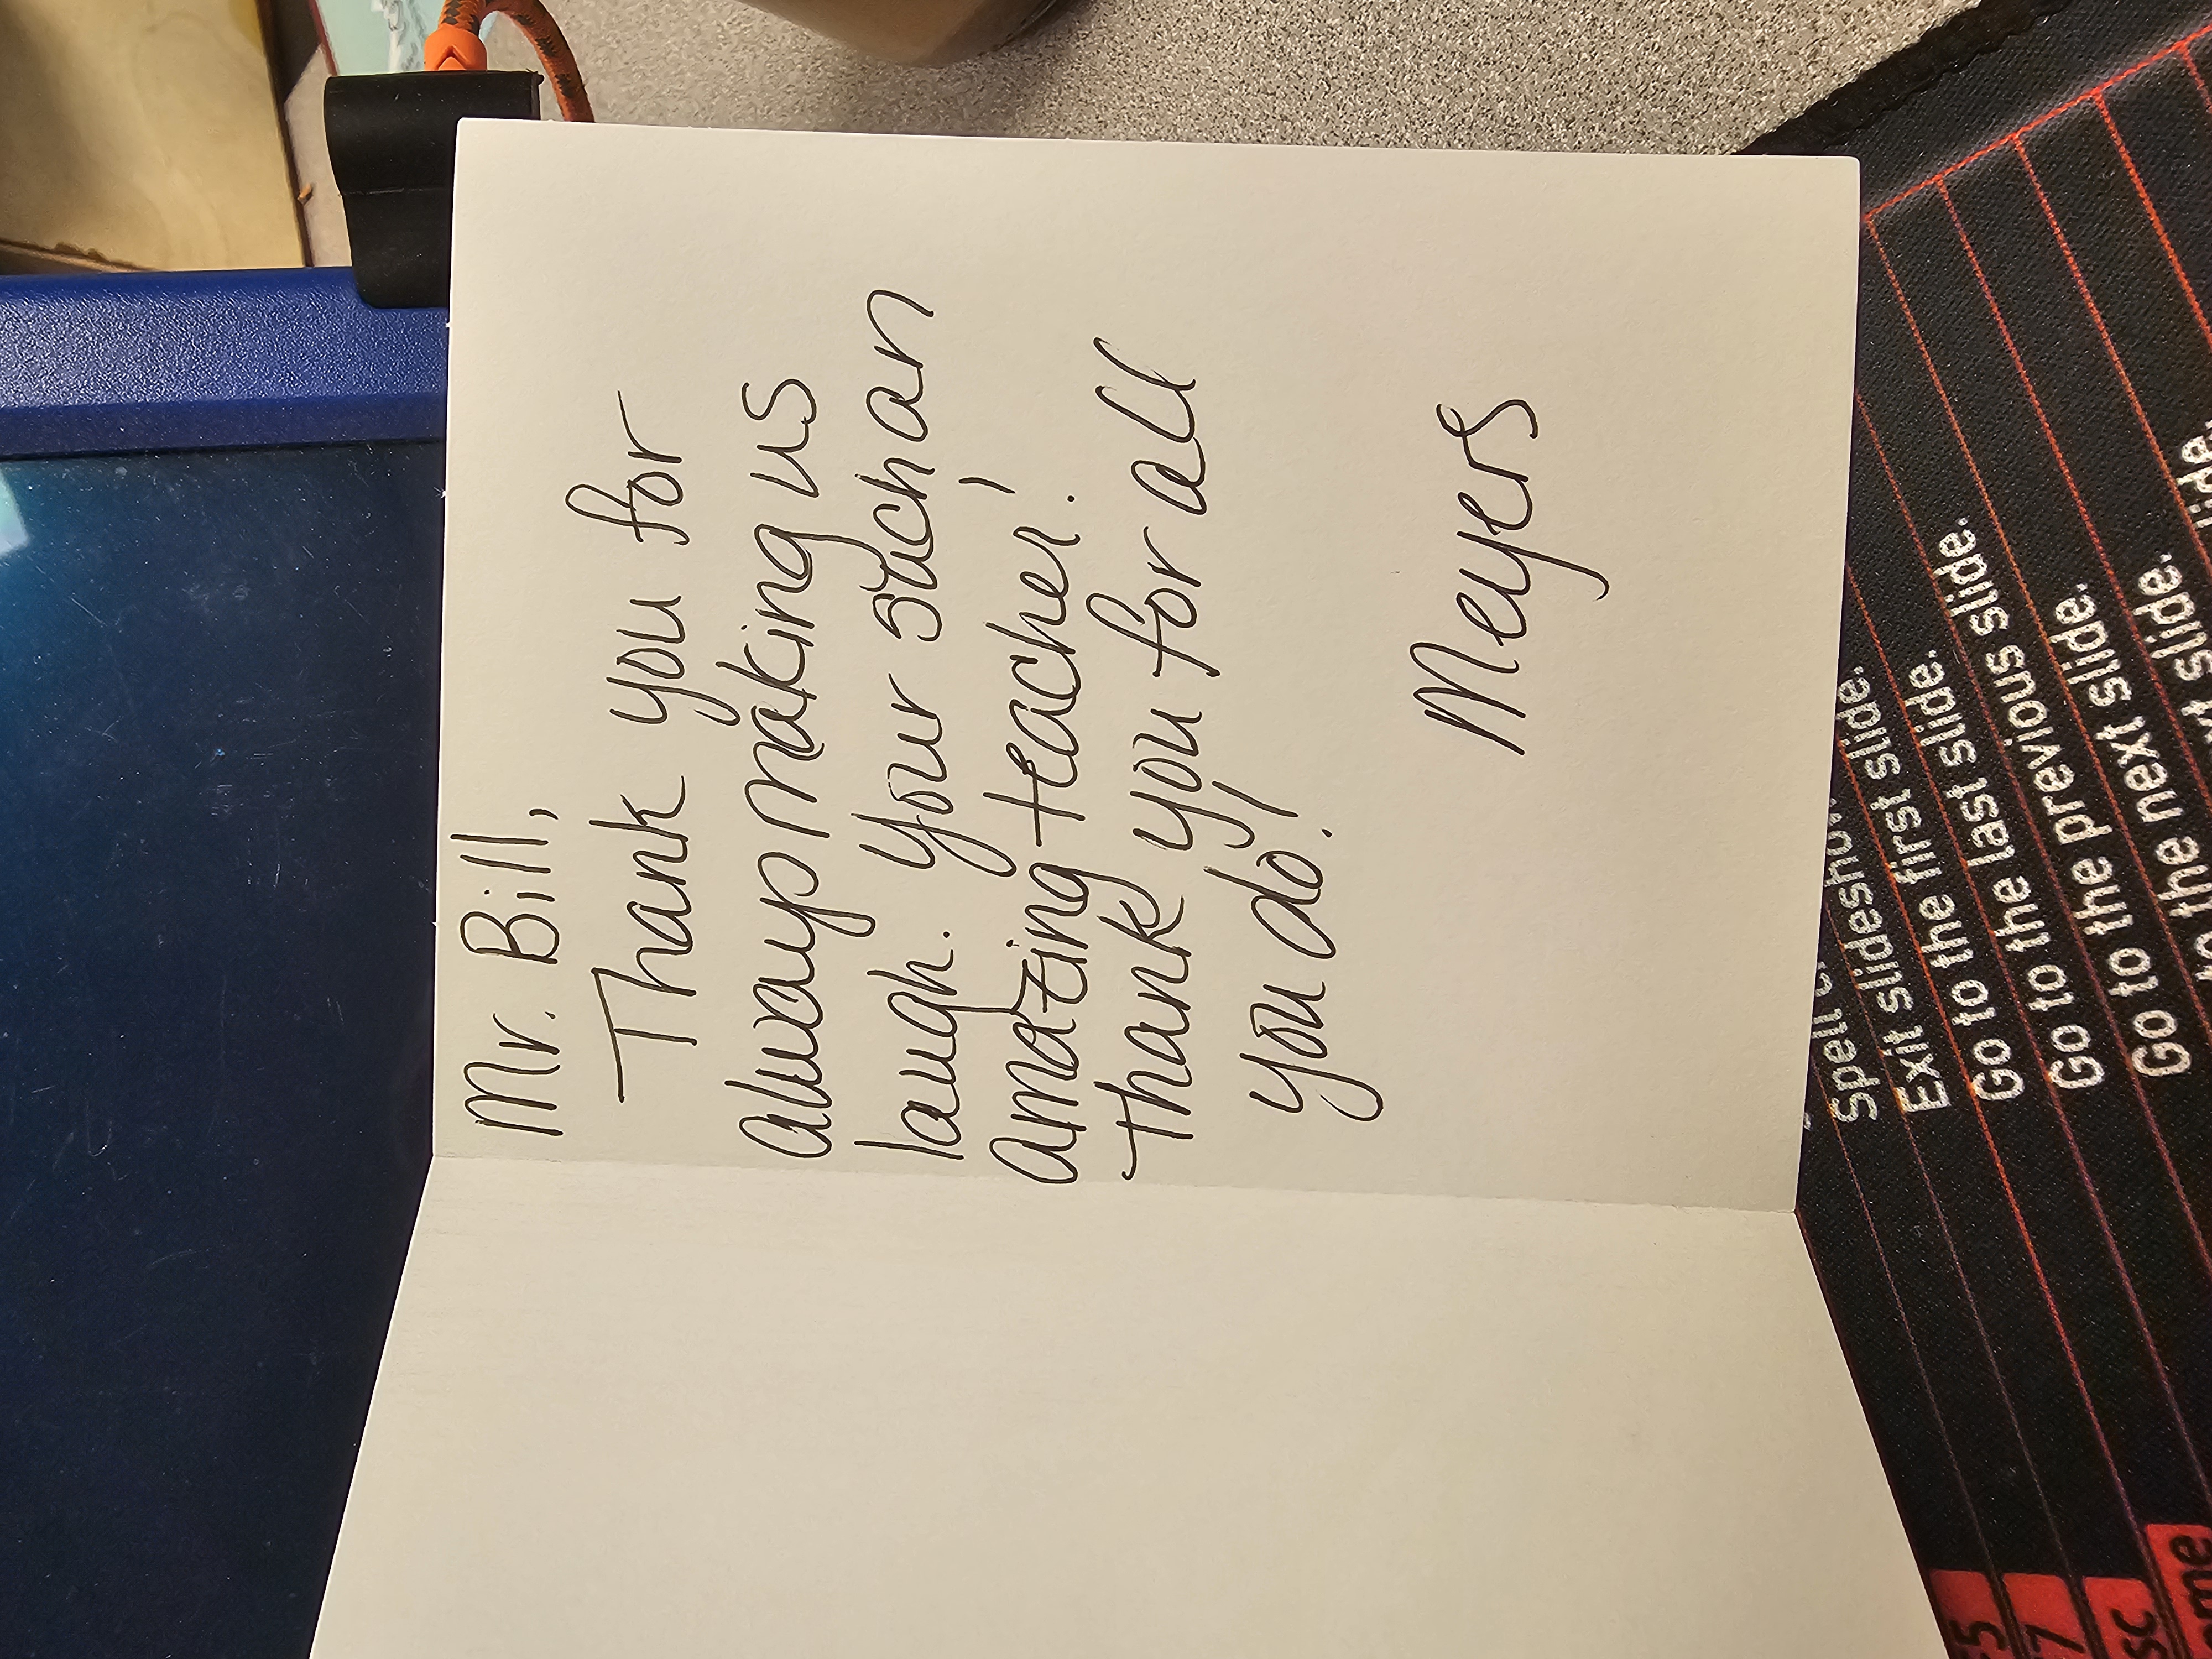 Mr. Bill,
Thank you for
always making us
laugh. Your such an
amazing teacher!
thank you for all
you do!
Meyers
Exit slideshow
Go to the first slide.
Go to the last slide.
Go to the previous slide.
Go to the next slide.